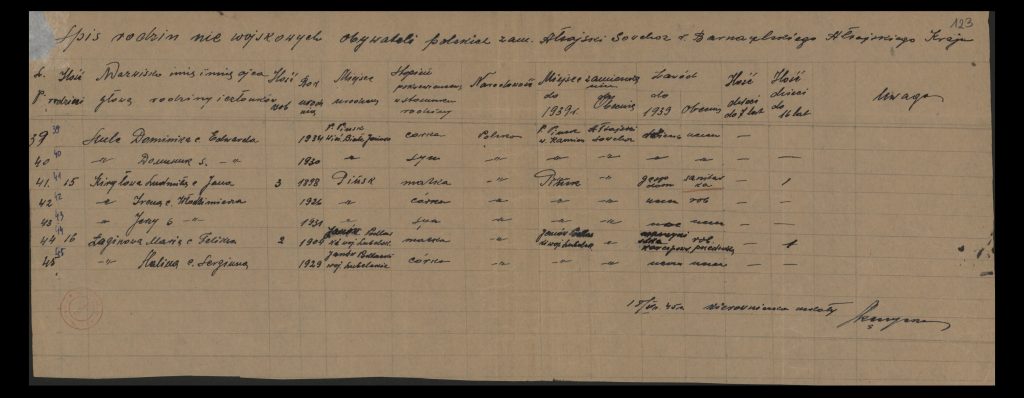 123
Spis rodzin nie wojskowych obywateli polskich zam. Ałtajski Sowchoz r. Barnaulskiego Ałtajskiego Kraju
L. P. Ilość rodzini Nazwisko imię i imię ojca głowy rodziny i członków Ilość osób Rok urodz. Miejsce urodzenia Stopień pokrewieństwa w stosunku rodziny Narodowość Miejsce zamieszk. do 1939r. Obecnie Zawód do 1939 Obecn. Ilość dzieci do 7 lat Ilość dzieci do 16 lat Uwaga
39 39 Dominika c. Edwarda 1934 córka Polska P. Pińsk Ałtajski Sowchoz uczen —
40 40 -"- Dominik s. -"- 1930 -"- syn -"- -"- -"- -"- -"- —
41. 41 15 Ludmiła c. Jana 3 1898 Pińsk matka -"- Pińsk -"- gosp dom sanitarka — 1
42 42 -"- Irena c. Włodzimierza 1926 -"- córka -"- -"- -"- uczen rob —
43 43 -"- Jerzy s -"- 1931 -"- syn -"- -"- -"- uczen —
44 44 16 Łaginowa Maria c. Feliksa 2 1904 Janów Podlas woj lubelsk matka -"- Janów Podlas woj lubelsk -"- rob — 1
45 45 -"- Halina c. Sergiusza 1929 Janów Podlaski woj lubelskie córka -"- -"- -"- uczen uczen —
45r. kierowniczka szkoły